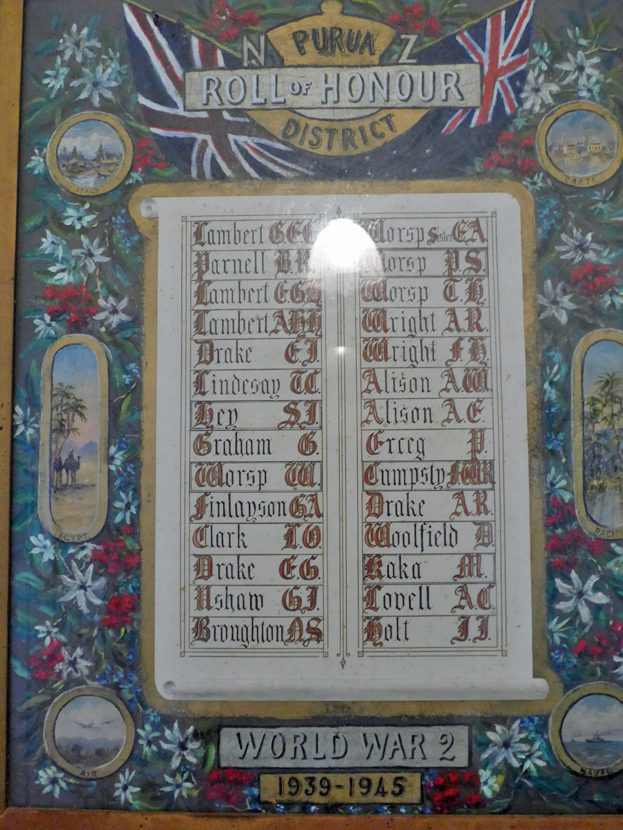 N PURUA Z
ROLL OF HONOUR
DISTRICT
ITALY
CRETE
Lambert
Parnell B.R.
Lambert
Lambert
Drake E.J.
Lindesay
Hey S.J.
Graham G.
Worsp W.
Finlayson G.A
Clark L.O
Drake E.G.
Ushaw G.J.
Broughton N.S
Worsp Sister E.A.
Worsp P.S.
Worsp T.H
Wright A.R.
Wright F.H.
Alison A.W.
Alison A.E.
Erceg P.
Cumpsty F.W.R
Drake A.R.
Woolfield D.
Kaka M.
Lovell A.C.
Holt J.J.
EGYPT
PACIFIC
AIR
NAVAL
WORLD WAR 2
1939-1945